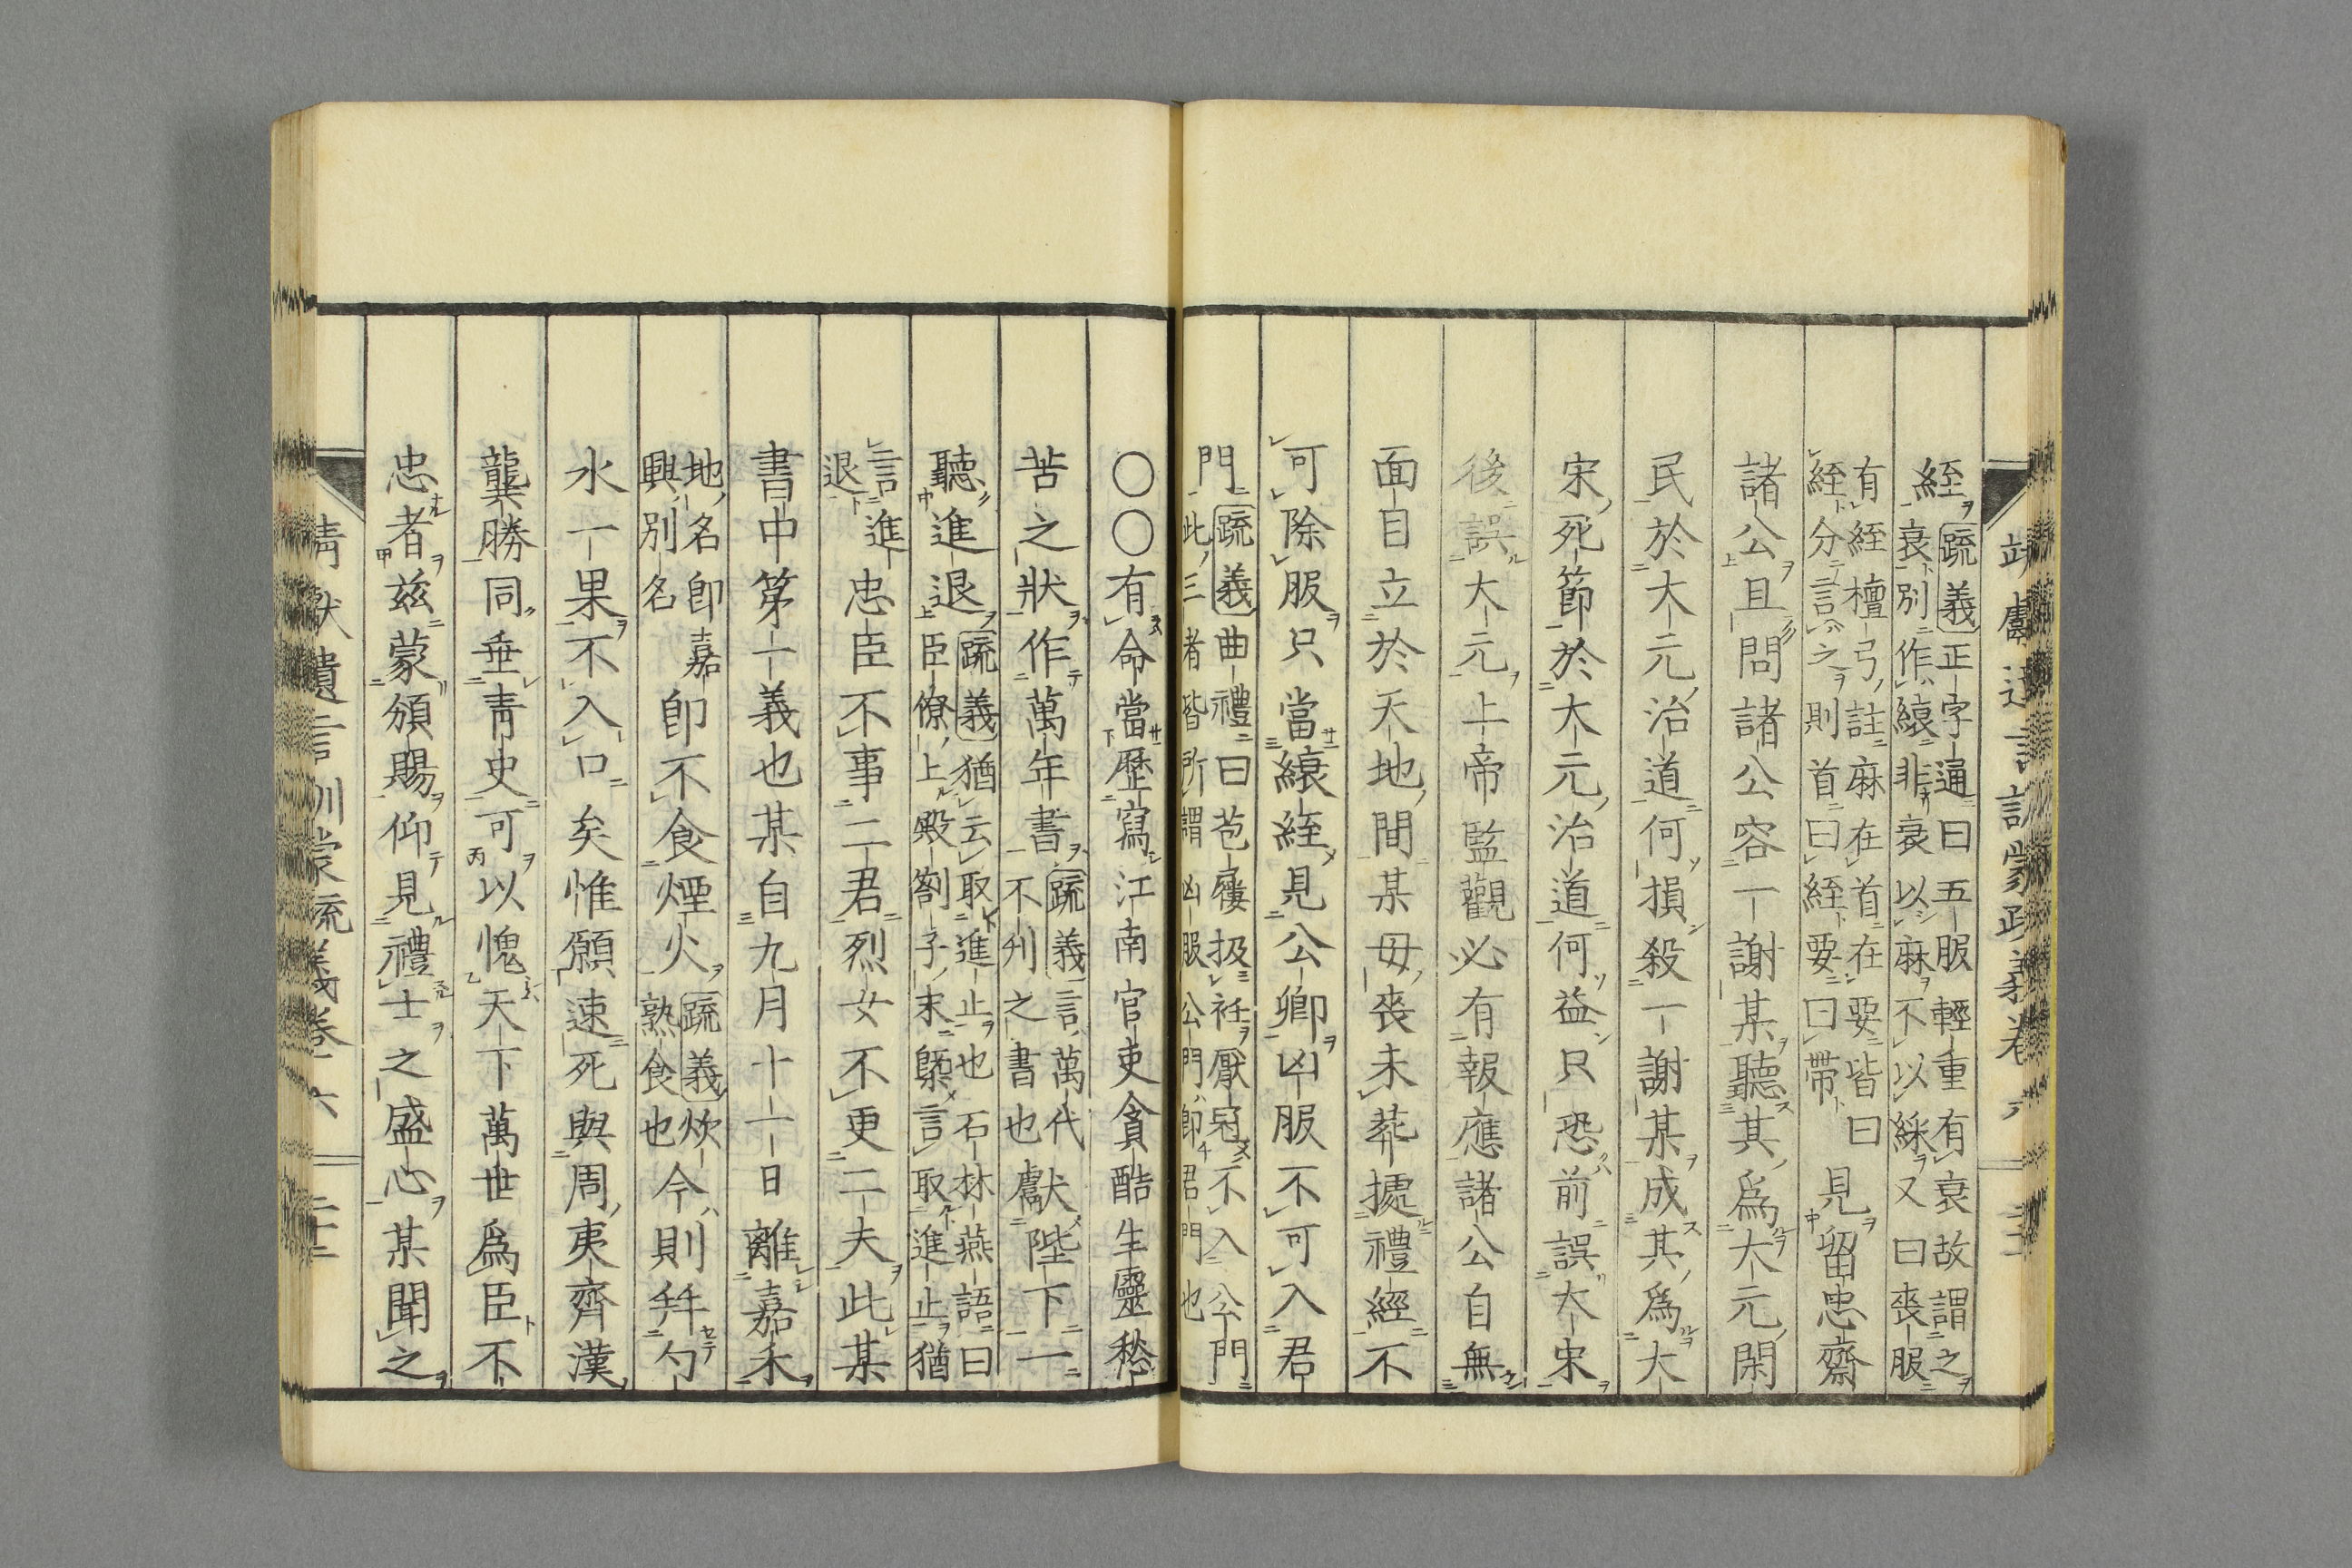 絰疏義正字通曰五服輕重有衰故謂之
衰別作縗非衰以麻不以綵又曰喪服
有絰檀弓註麻在首在要皆曰
絰分言之則首曰絰要曰帶見留忠齋
諸公且問諸公容一謝某聽其爲大元閑
民於大元治道何損殺一謝某成其爲大
宋死節於大元治道何益只恐前誤大宋
後誤大元上帝監觀必有報應諸公自無
面目立於天地間某母喪未葬據禮經不
可除服只當縗絰見公卿凶服不可入君
門疏義曲禮曰苞屨扱衽厭冠不入公門
此三者皆所謂凶服公門卽君門也
〇〇有命當歷寫江南官吏貪酷生靈愁
苦之狀作萬年書疏義言萬代
不刋之書也獻陛下一
聽進退疏義猶云取進止也石林燕語曰
臣僚上殿劄子末槩言取進止猶
言進
退忠臣不事二君烈女不更二夫此某
書中第一義也某自九月十一日離嘉禾
地名卽嘉
興別名卽不食煙火疏義炊
熟食也今則㪺勺
水一果不入口矣惟願速死與周夷齊漢
龔勝同垂靑史可以愧天下萬世爲臣不
忠者兹蒙頒賜仰見禮士之盛心某聞之